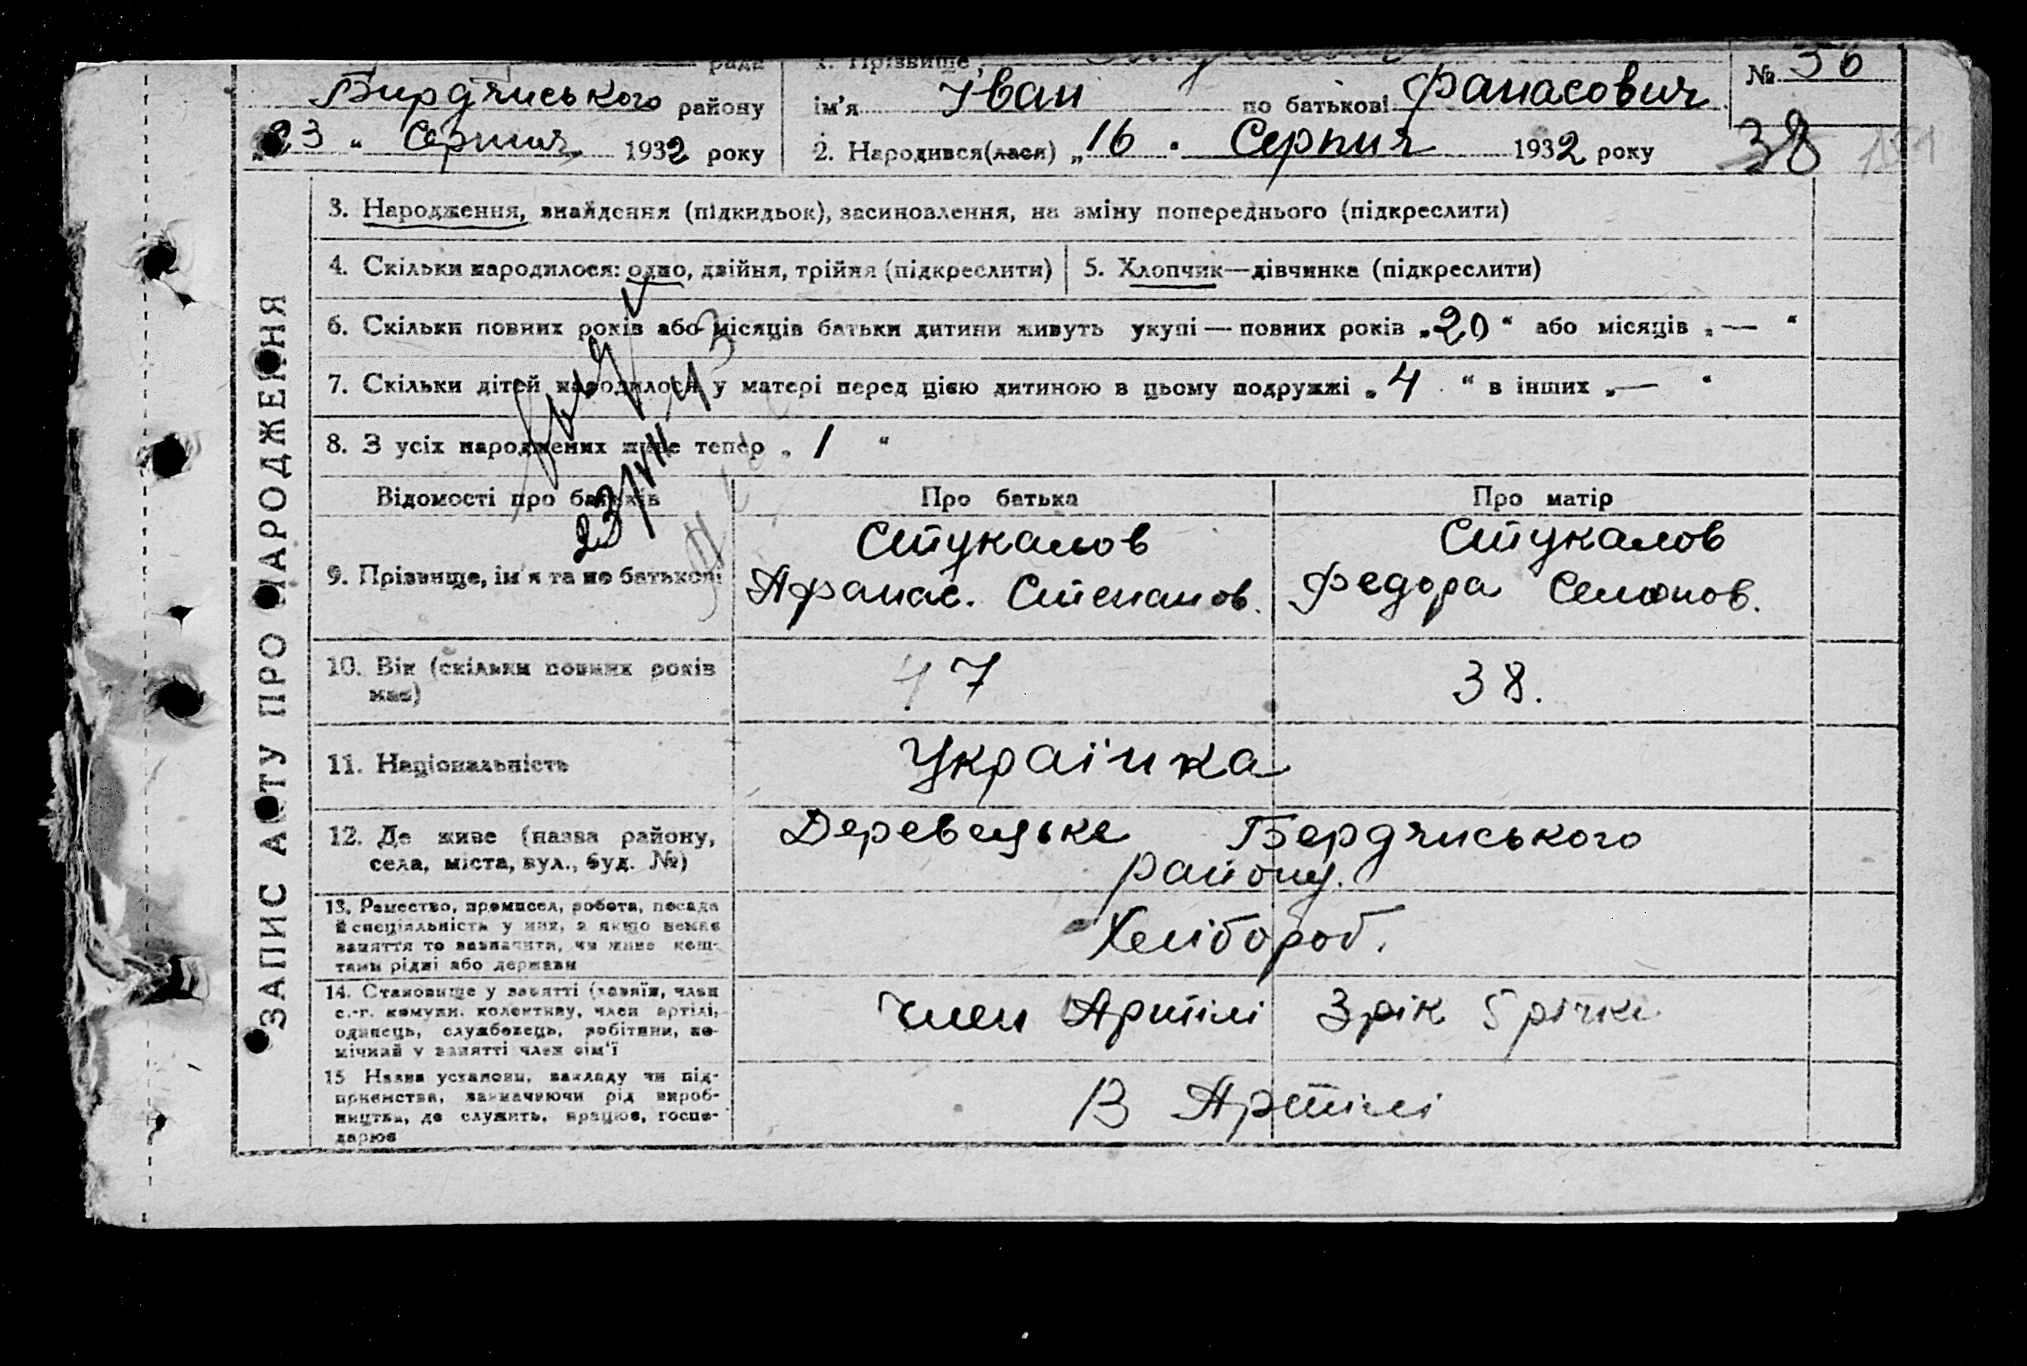 рада
1. Прізвище
№ 36
Бирдянського району
ім'я Іван по батькові Фанасович
„23" Серпня 1932 року
2. Народився(лася) „16" Серпня 1932 року
38
ЗАПИС АКТУ ПРО НАРОДЖЕННЯ
3. Народження, знайдення (підкидьок), засиновлення, на зміну попереднього (підкреслити)
4. Скільки народилося: одно, двійня, трійня (підкреслити)
5. Хлопчик—дівчинка (підкреслити)
6. Скільки повних років або місяців батьки дитини живуть укупі — повних років „20" або місяців „—"
7. Скільки дітей народилося у матері перед цією дитиною в цьому подружжі „4" в інших „—"
8. З усіх народжених живе тепер „1"
23/VIII
Відомості про батьків
Про батька
Про матір
9. Прізвище, ім'я та по батькові
Стукалов
Афанас. Степанов.
Стукалов
Федора Семонов.
10. Вік (скільки повних років
має)
47
38.
11. Національність
Українка
12. Де живе (назва району,
села, міста, вул., буд. №)
Деревецьке Бердянського
району.
13. Ремество, промисел, робота, посада
й спеціяльність у них, а якщо немає
заняття то зазначити, чи живе кош-
тами рідні або держави
Хлібороб.
14. Становище у занятті (хазяїн, член
с.-г. комуни, колективу, член артілі,
одинець, службовець, робітник, по-
мічний у занятті член сім'ї
член Артілі 3 рік 5 річки
15 Назва установи, закладу чи під-
приємства, зазначаючи рід вироб-
ництва, де служить, працює, госпо-
дарює
В Артілі